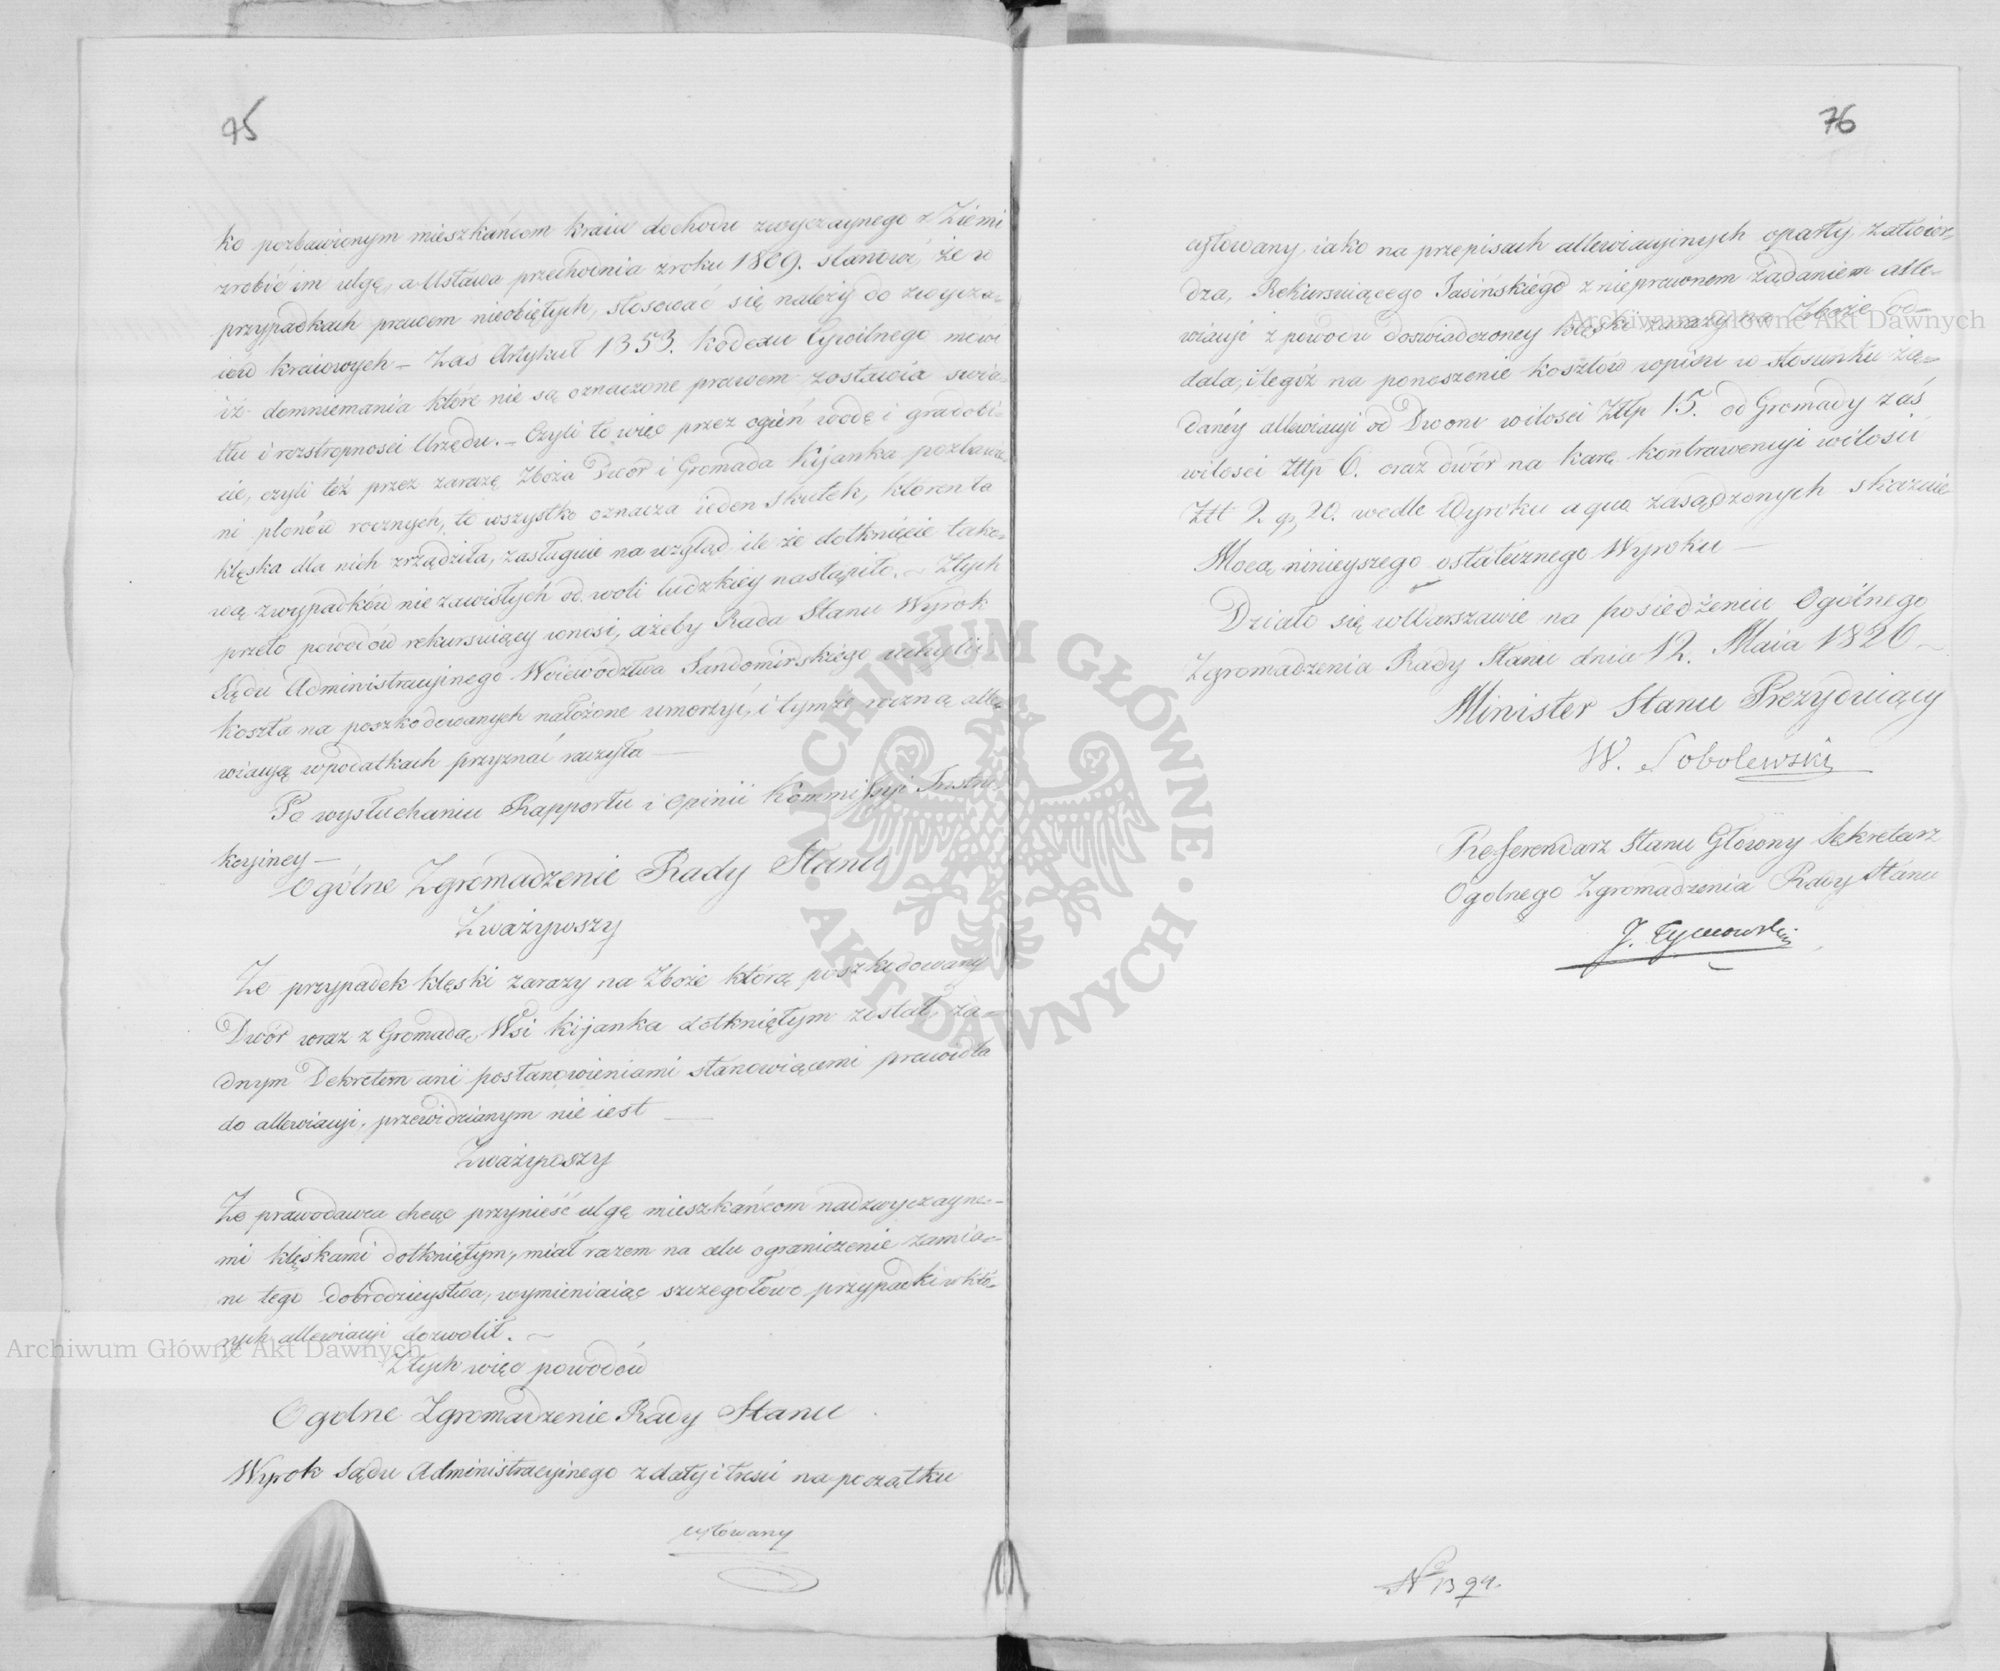 75
ko pozbawionym mieszkańcom kraiu dochodu zwyczaynego z Ziemi
zrobić im ulgę, a Ustawa przechodnia z roku 1809. stanowi, że w
przypadkach prawem nieobiętych, stosować się należy do zwycza-
iów kraiowych – Zas Artykuł 1353. Kodexu Cywilnego mówi
iż domniemania które nie są oznaczone prawem zostawia świa-
tłu i rozstropnosci Urzędu. – Czyli to więc przez ogień wodę i gradobi-
cie, czyli też przez zarazę Zboża Dwór i Gromada Kijanka pozbawie-
ni plonów rocznych, to wszystko oznacza ieden skutek, któren ta
klęska dla nich zrządziła, zasługuie na wzgląd ile że dotknięcie tako-
wą z wypadków niezawisłych od woli ludzkiey nastąpiło. – Z tych
przeto powodów rekursuiący wnosi, ażeby Rada Stanu Wyrok
Sądu Administracyinego Woiewództwa Sandomirskiego uchylić,
koszta na poszkodowanych nałożone umorzyć, i tymże roczną alle-
wiacyą w podatkach przyznać raczyła –
Po wysłuchaniu Rapportu i Opinii Kommissyi Instruk-
kcyiney –
Ogólne Zgromadzenie Rady Stanu
Zważywszy
Że przypadek klęski zarazy na Zboże którą poszkodowany
Dwór wraz z Gromadą Wsi Kijanka dotkniętym został, ża-
dnym Dekretem ani postanowieniami stanowiącemi prawidła
do allewiacyi, przewidzianym nie iest –
Zważywszy
Że prawodawca chcąc przynieść ulgę mieszkańcom nadzwyczayne-
mi klęskami dotkniętym, miał razem na celu ograniczenie zamia-
ru tego dobrodzieystwa, wymieniaiąc szczegółowo przypadki w któ-
rych allewiacyi dozwolił. –
Z tych więc powodów
Ogolne Zgromadzenie Rady Stanu
Wyrok Sądu Administracyinego z daty i treści na początku
cytowany
76
cytowany, iako na przepisach allewiacyinych oparty, zatwier-
dza, Rekursuiącego Jasińskiego z nieprawnem żądaniem alle-
wiacyi z powodu doswiadczoney klęski zarazy na Zboże od-
dala, i tegoż na ponoszenie kosztów wpisu w stosunku żą-
danéy allewiacyi od Dworu w ilosci Złłp 15. od Gromady zaś
w ilosci Złłp 6. oraz dwór na karę kontrawencyi w ilości
Złł 2. g. 20. wedle Wyroku a quo zasądzonych skazuie
Mocą ninieyszego ostatecznego Wyroku –
Działo się w Warszawie na posiedżeniu Ogólnego
Zgromadzenia Rady Stanu dnia 12. Maia 1826 –
Minister Stanu Prezyduiący
W. Sobolewski
Referendarz Stanu Główny Sekretarz
Ogolnego Zgromadzenia Rady Stanu
J. Tymowski
No 1394.
ARCHIWUM GŁÓWNE · AKT DAWNYCH ·
Archiwum Główne Akt Dawnych
Archiwum Główne Akt Dawnych